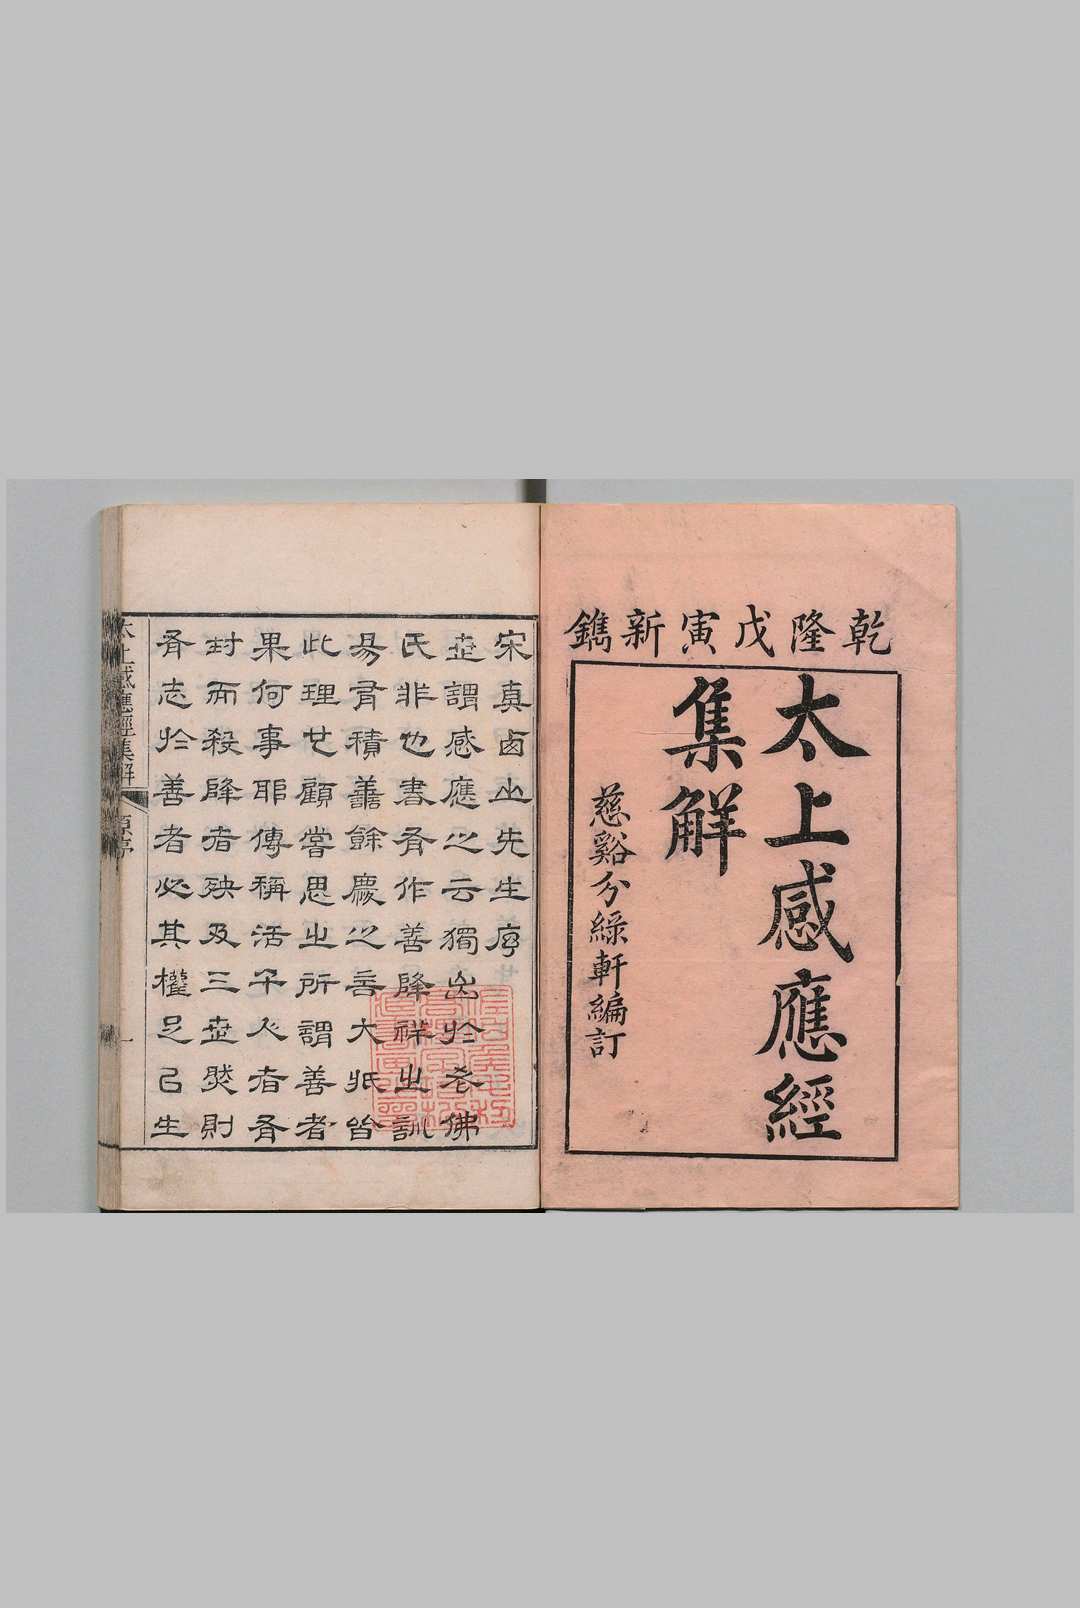 乾隆戊寅新鐫
太上感應經
集解
慈谿分綠軒編訂
宋真西山先生序
世謂感應之云獨出於老佛
氏非也書有作善降祥之訓
易有積善餘慶之言大抵皆
此理也顧嘗思之所謂善者
果何事耶傳稱活千人者有
封而殺降者殃及三世然則
有志於善者必其權足已生
太上感應經集解
原序
一